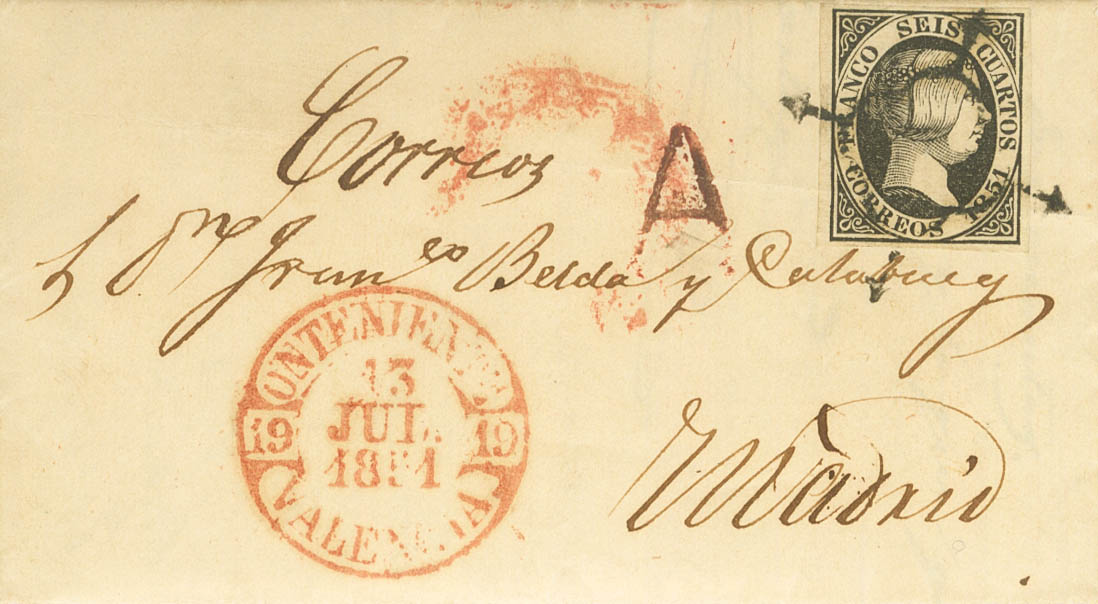 FRANCO SEIS CUARTOS
CORREOS 1851
A
Correos
Dn Franco Belda y
Madrid
ONTENIENTE
13
JUL.
1851
19 19
VALENCIA